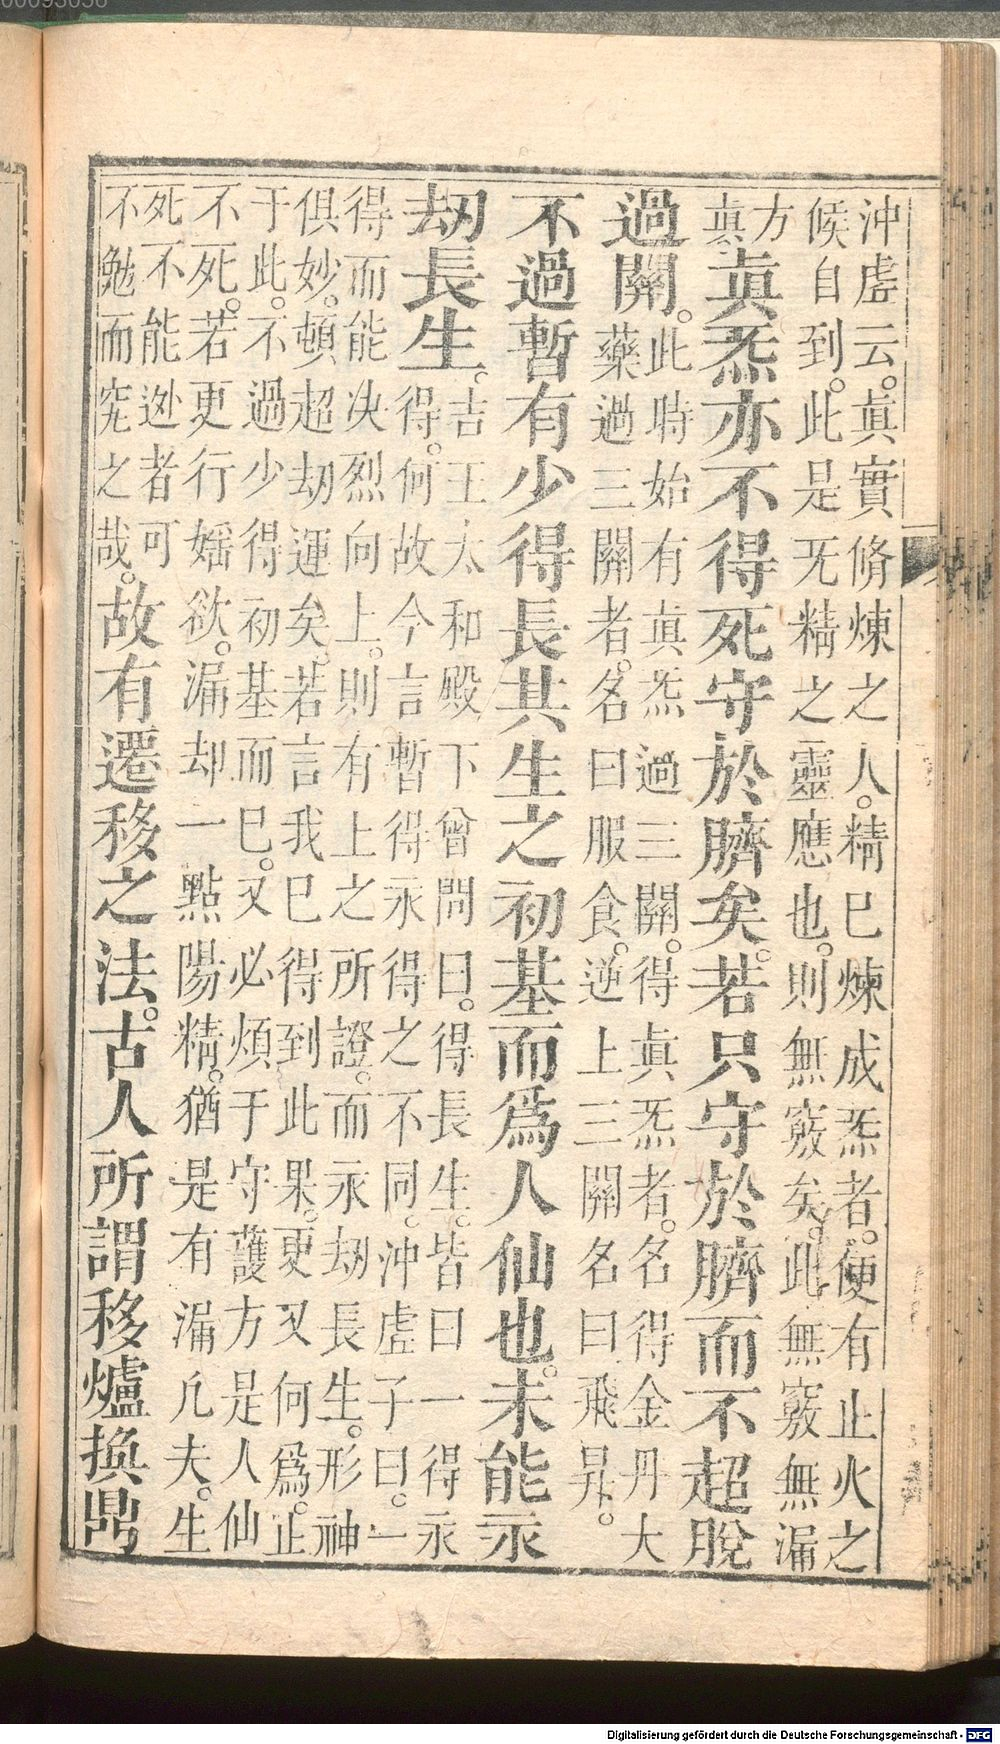 沖虛云。眞實脩煉之人。精已煉成炁者。便有止火之
候自到。此是旡精之靈應也。則無竅矣。此無竅無漏
方
眞
眞炁亦不得死守於臍矣。若只守於臍而不超脫
過關。
此時始有眞炁過三關。得眞炁者。名得金丹大
藥過三關者。名曰服食。逆上三關名曰飛昇。
不過暫有少得長其生之初基而爲人仙也。未能永
劫長生。
吉王太和殿下曾問曰。得長生。皆曰一得永
得。何故今言暫得永得之不同。沖虛子曰。一
得而能决烈向上。則有上之所證。而永劫長生。形神
俱妙。頓超劫運矣。若言我已得到此果。更又何爲。止
于此。不過少得初基而已。又必煩于守護方是人仙
不死。若更行婬欲。漏却一點陽精。猶是有漏凢夫。生
死不能迯者可
不勉而究之哉。
故有遷移之法。古人所謂移爐換鼎
Digitalisierung gefördert durch die Deutsche Forschungsgemeinschaft - DFG